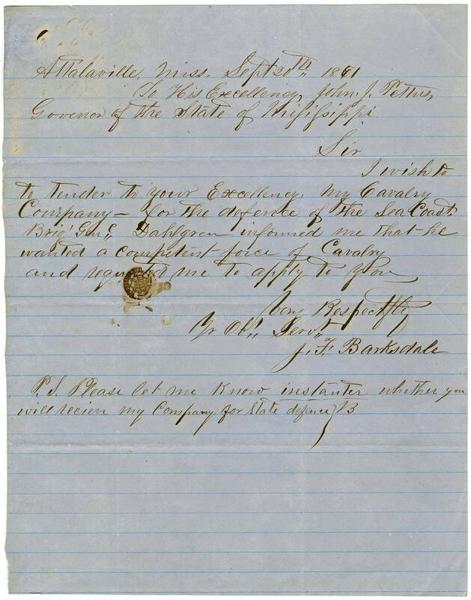 Attalaville, Miss. Sept 20th, 1861
To His Excellency, John. J. Pettus,
Govenor of the State of Mississippi.
Sir
I wish to
to tender to your Excellency, my Cavalry
Company — for the defence of the Sea Coast.
Brig. Genl. Dahlgren informed me that he
wanted a competent force of Cavalry
and requested me to apply to you
Very Respectfly
Yr Obt. Servt.
J. F. Barksdale
P.S. Please let me know instanter whether you
will receive my Company for State defence JB